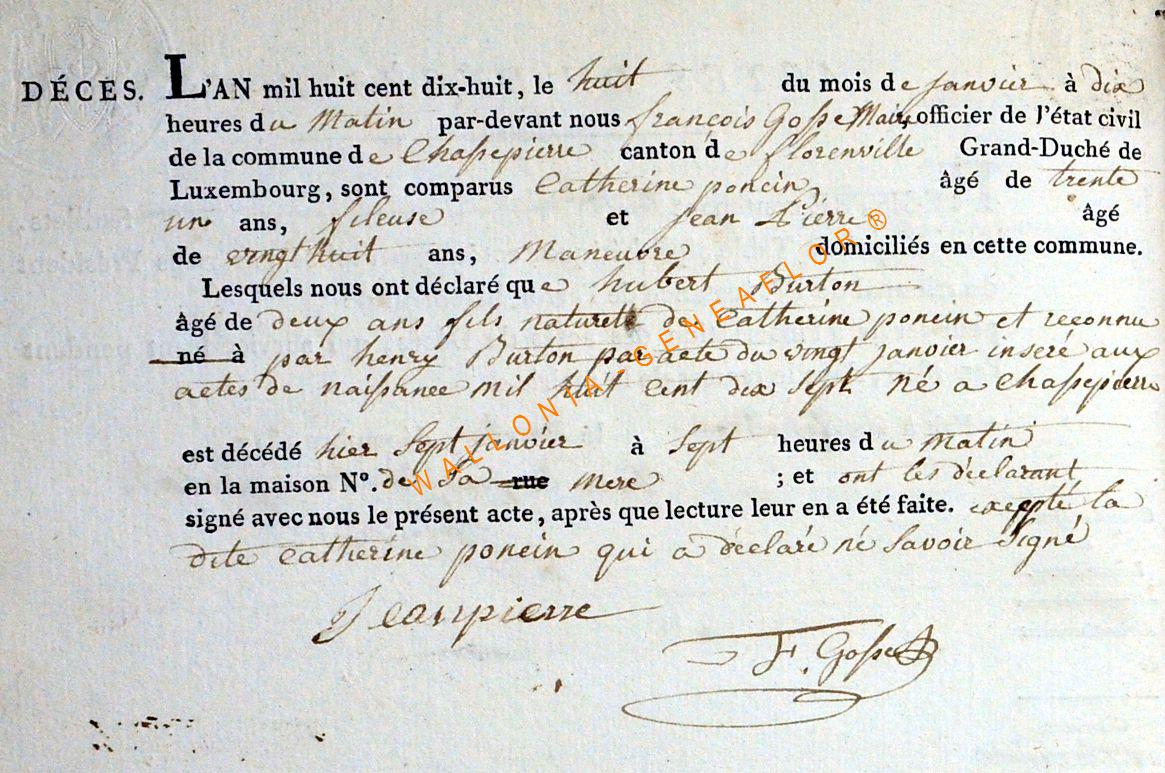 DÉCÈS. L'AN mil huit cent dix-huit, le huit du mois de janvier à dix
heures du Matin par-devant nous françois Gosse Maire, officier de l'état civil
de la commune de Chassepierre canton de florenville Grand-Duché de
Luxembourg, sont comparus Catherine poncin, âgé de trente
un ans, fileuse et jean Pierre âgé
de vingt huit ans, Maneuvre domiciliés en cette commune.
Lesquels nous ont déclaré que hubert Burton
âgé de deux ans fils naturelle de Catherine poncin et reconnu
né à par henry Burton par acte du vingt janvier inseré aux
actes de naissance mil huit cent dix sept né a Chassepierre
est décédé hier sept janvier à sept heures du matin
en la maison N°. de sa rue mere ; et ont les déclarant
signé avec nous le présent acte, après que lecture leur en a été faite. excepté la
dite Catherine poncin qui a déclaré né savoir signé
Jeanpierre
F. Gosse
WALLONIA-GENEAFLOR®